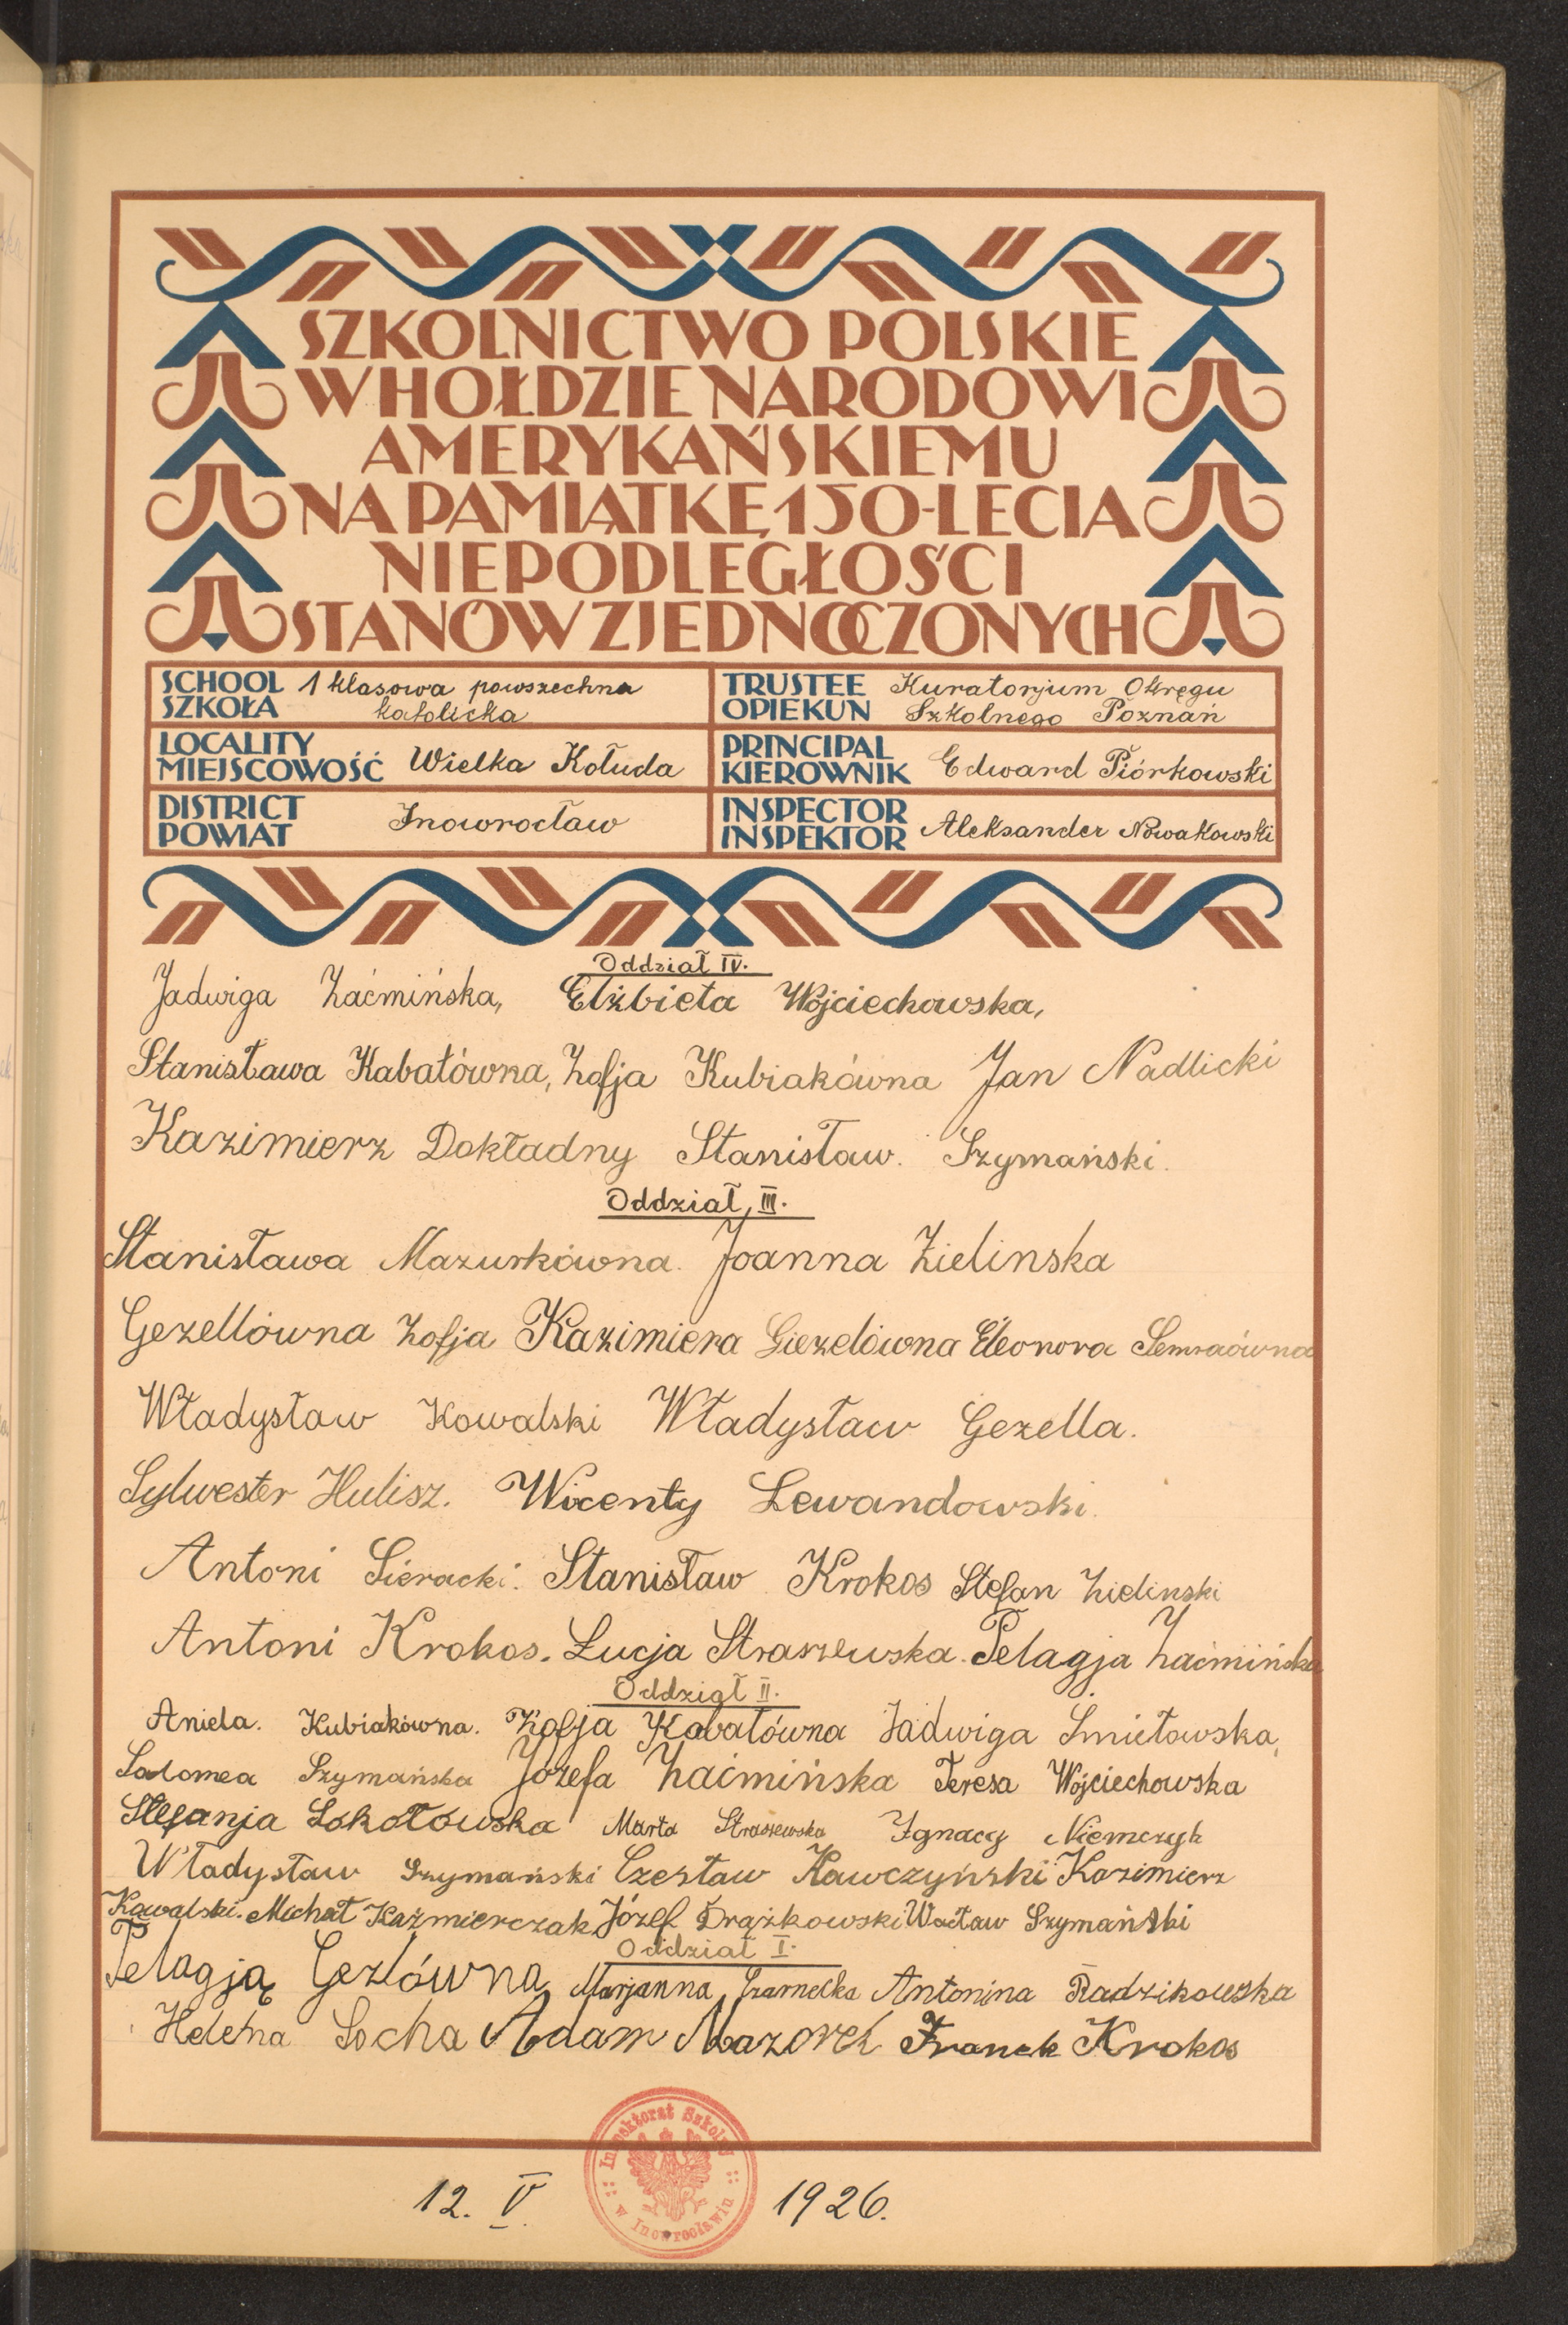 SZKOLNICTWO POLSKIE
W HOŁDZIE NARODOWI
AMERYKAŃSKIEMU
NA PAMIĄTKĘ 150-LECIA
NIEPODLEGŁOŚCI
STANÓW ZJEDNOCZONYCH
SCHOOL SZKOŁA 1 klasowa powszechna katolicka
TRUSTEE OPIEKUN Kuratorjum Okręgu Szkolnego Poznań
LOCALITY MIEJSCOWOŚĆ Wielka Kołuda
PRINCIPAL KIEROWNIK Edward Piórkowski
DISTRICT POWIAT Inowrocław
INSPECTOR INSPEKTOR Aleksander Nowakowski
Oddział IV.
Jadwiga Zaćmińska, Elżbieta Wojciechowska,
Stanisława Kabatówna, Zofja Kubiakówna Jan Nadlicki
Kazimierz Dokładny Stanisław. Szymański.
Oddział, III.
Stanisława Mazurkówna. Joanna Zielinska
Gezellówna Zofja Kazimiera Giezelówna Eleonora
Władysław Kowalski Władysław Gezella.
Sylwester Hulisz. Wicenty Lewandowski.
Antoni Sieracki. Stanisław Krokos Stefan Zielinski
Antoni Krokos. Łucja Straszewska. Pelagja Zaćmińska
Oddział II.
Aniela. Kubiakówna. Zofja Kabatówna Jadwiga Śmiełowska,
Salomea Szymańska Józefa Zaćmińska Teresa Wojciechowska
Stefanja Sokołówska Marta Straszewska Ignacy Niemczyk
Władysław Szymański Czesław Kawczyński Kazimierz
Kowalski. Michał Kaźmierczak Józef Drążkowski Wacław Szymański
Oddział I.
Pelagją Gezlówna Marjanna Czarnecka Antonina Radzikowska
Helena Socha Adam Mazorek Franek Krokos
Inspektorat Szkolny w Inowrocławiu
12. V. 1926.